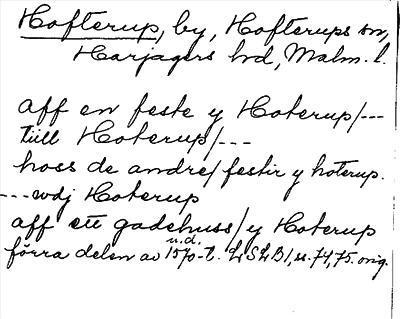 Hofterup, by, Hofterups sn,
Harjagers hd, Malm. l.
aff en feste y Hoterup/---
tiill Hoterup/---
hoss de andre/festir y hoterup.
---wdj Hoterup
aff ett gadehuss/y Hoterup
u.d.
förra delen av 1570-t. LSLB1, ss. 74, 75. orig.